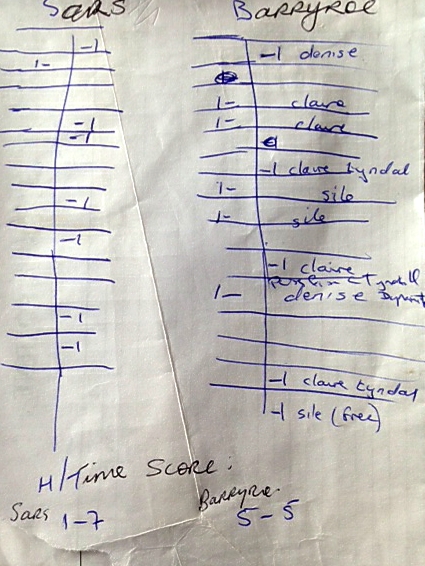 Sars
-1
1-
-1
-1
-1
-1
-1
-1
Barryroe
-1 denise
1- claire
1- claire
-1 claire tyndal
1- sile
1- sile
-1 claire
1- denise
-1 claire tyndal
-1 sile (free)
H/Time Score:
Sars 1-7
Barryroe 5-5